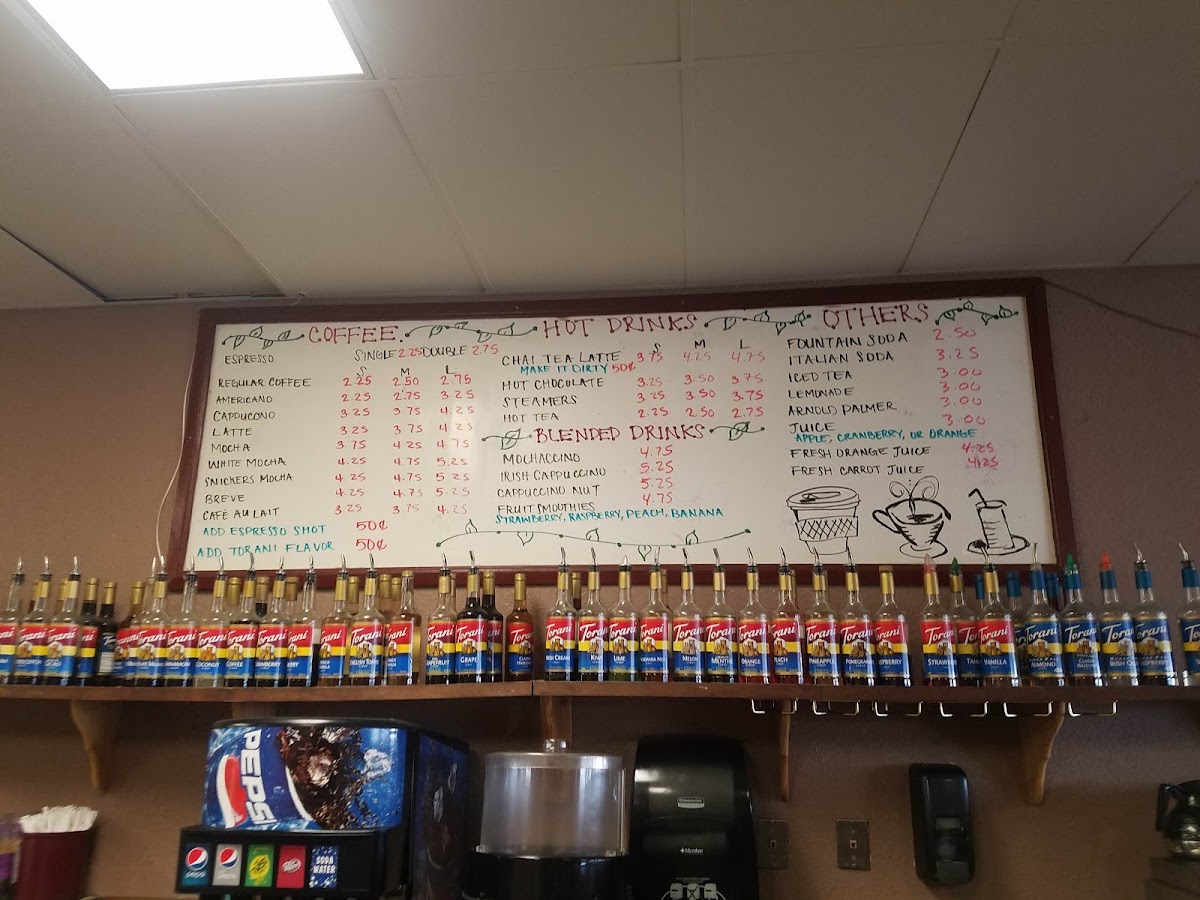 COFFEE
ESPRESSO SINGLE 2.25 DOUBLE 2.75
S M L
REGULAR COFFEE 2.25 2.50 2.75
AMERICANO 2.25 2.75 3.25
CAPPUCCINO 3.25 3.75 4.25
LATTE 3.25 3.75 4.25
MOCHA 3.75 4.25 4.75
WHITE MOCHA 4.25 4.75 5.25
SNICKERS MOCHA 4.25 4.75 5.25
BREVE 4.25 4.75 5.25
CAFÉ AU LAIT 3.25 3.75 4.25
ADD ESPRESSO SHOT 50¢
ADD TORANI FLAVOR 50¢
HOT DRINKS
S M L
CHAI TEA LATTE 3.75 4.25 4.75
MAKE IT DIRTY 50¢
HOT CHOCOLATE 3.25 3.50 3.75
STEAMERS 3.25 3.50 3.75
HOT TEA 2.25 2.50 2.75
BLENDED DRINKS
MOCHACCINO 4.75
IRISH CAPPUCCINO 5.25
CAPPUCCINO NUT 5.25
FRUIT SMOOTHIES 4.75
STRAWBERRY, RASPBERRY, PEACH, BANANA
OTHERS
FOUNTAIN SODA 2.50
ITALIAN SODA 3.25
ICED TEA 3.00
LEMONADE 3.00
ARNOLD PALMER 3.00
JUICE 3.00
APPLE, CRANBERRY, OR ORANGE
FRESH ORANGE JUICE 4.25
FRESH CARROT JUICE 4.25
Torani
COCONUT
Torani
COFFEE
Torani
Torani
GRAPE
Torani
LIME
Torani
MELON
Torani
Torani
PINEAPPLE
Torani
POMEGRANATE
Torani
Torani
VANILLA
Torani
ALMOND
Torani
PEPSI
pepsi
pepsi
SODA
WATER